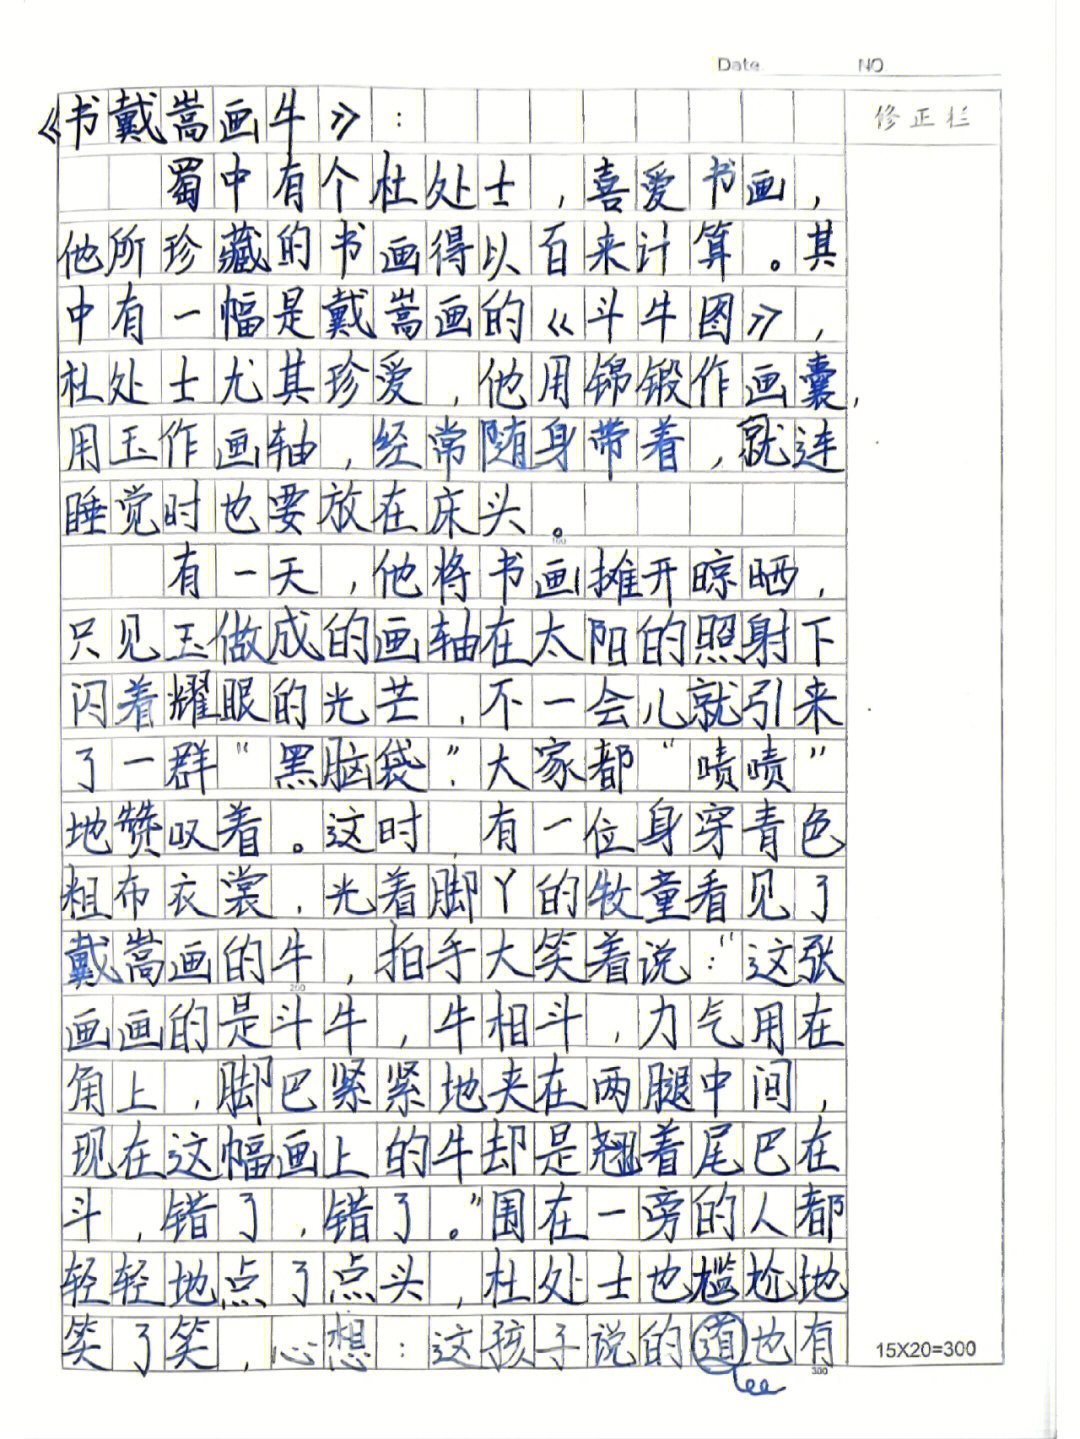 Date NO
修正栏
《书戴嵩画牛》:
蜀中有个杜处士,喜爱书画,
他所珍藏的书画得以百来计算。其
中有一幅是戴嵩画的《斗牛图》,
杜处士尤其珍爱,他用锦锻作画囊,
用玉作画轴,经常随身带着,就连
睡觉时也要放在床头。
有一天,他将书画摊开晾晒,
只见玉做成的画轴在太阳的照射下
闪着耀眼的光芒,不一会儿就引来
了一群“黑脑袋”.大家都“啧啧”
地赞叹着。这时,有一位身穿青色
粗布衣裳,光着脚丫的牧童看见了
戴嵩画的牛,拍手大笑着说:“这张
画画的是斗牛,牛相斗,力气用在
角上,脚巴紧紧地夹在两腿中间,
现在这幅画上的牛却是翘着尾巴在
斗,错了,错了。”围在一旁的人都
轻轻地点了点头,杜处士也尴尬地
笑了笑,心想:这孩子说的道也有
15X20=300
100
200
300